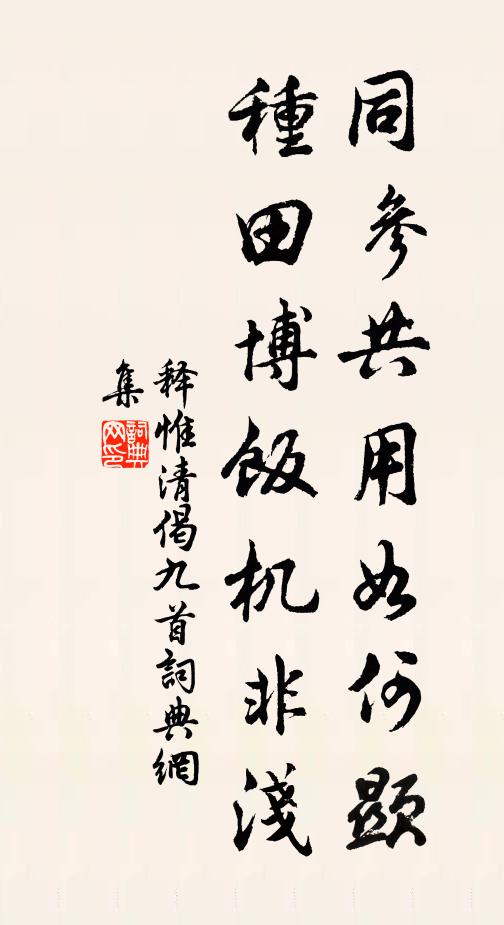 同參共用如何顯
種田博飯机非淺
释惟清偈九首詞典網
集
詞典网印